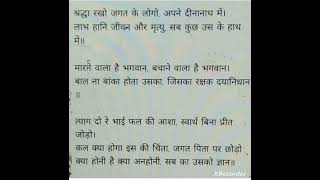 श्रद्धा रखो जगत के लोगो, अपने दीनानाथ में।
लाभ हानि जीवन और मृत्यु, सब कुछ उस के हाथ
में॥
मारने वाला है भगवान, बचाने वाला है भगवान।
बाल ना बांका होता उसका, जिसका रक्षक दयानिधान
॥
त्याग दो रे भाई फल की आशा, स्वार्थ बिना प्रीत
जोड़ो।
कल क्या होगा इस की चिंता, जगत पिता पर छोड़ो
क्या होनी है क्या अनहोनी, सब का उसको ज्ञान॥
XRecorder